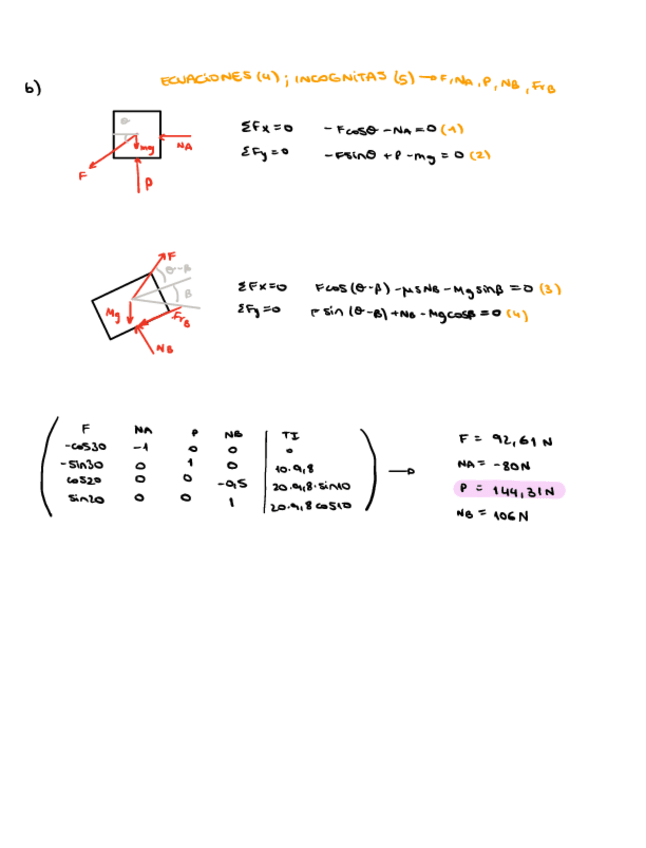 ECUACIONES (4) ; INCOGNITAS (5) → F, NA, P, NB, FrB
b)
θ
mg
NA
F
P
ΣFx=0 -Fcosθ - NA = 0 (1)
ΣFy=0 -Fsinθ + P - mg = 0 (2)
F
θ-β
β
Mg
FrB
NB
ΣFx=0 Fcos(θ-β) - μsNB - Mgsinβ = 0 (3)
ΣFy=0 F sin (θ-β) + NB - Mgcosβ = 0 (4)
F NA P NB TI
-cos30 -1 0 0 0
-sin30 0 1 0 10·9,8
cos20 0 0 -0,5 20·9,8·sin10
sin20 0 0 1 20·9,8 cos10
→
F = 92,61 N
NA = -80N
P = 144,31N
NB = 106N